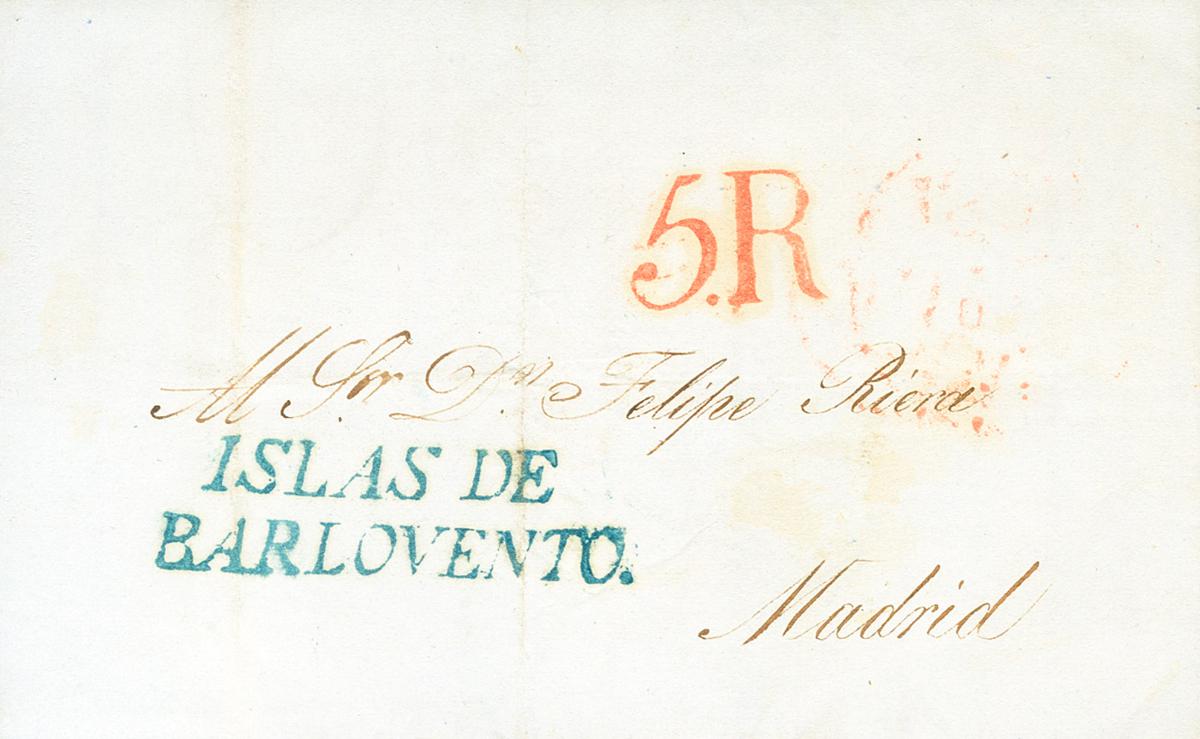 5.R
Al Sor Dn. Felipe Riera
ISLAS DE
BARLOVENTO.
Madrid